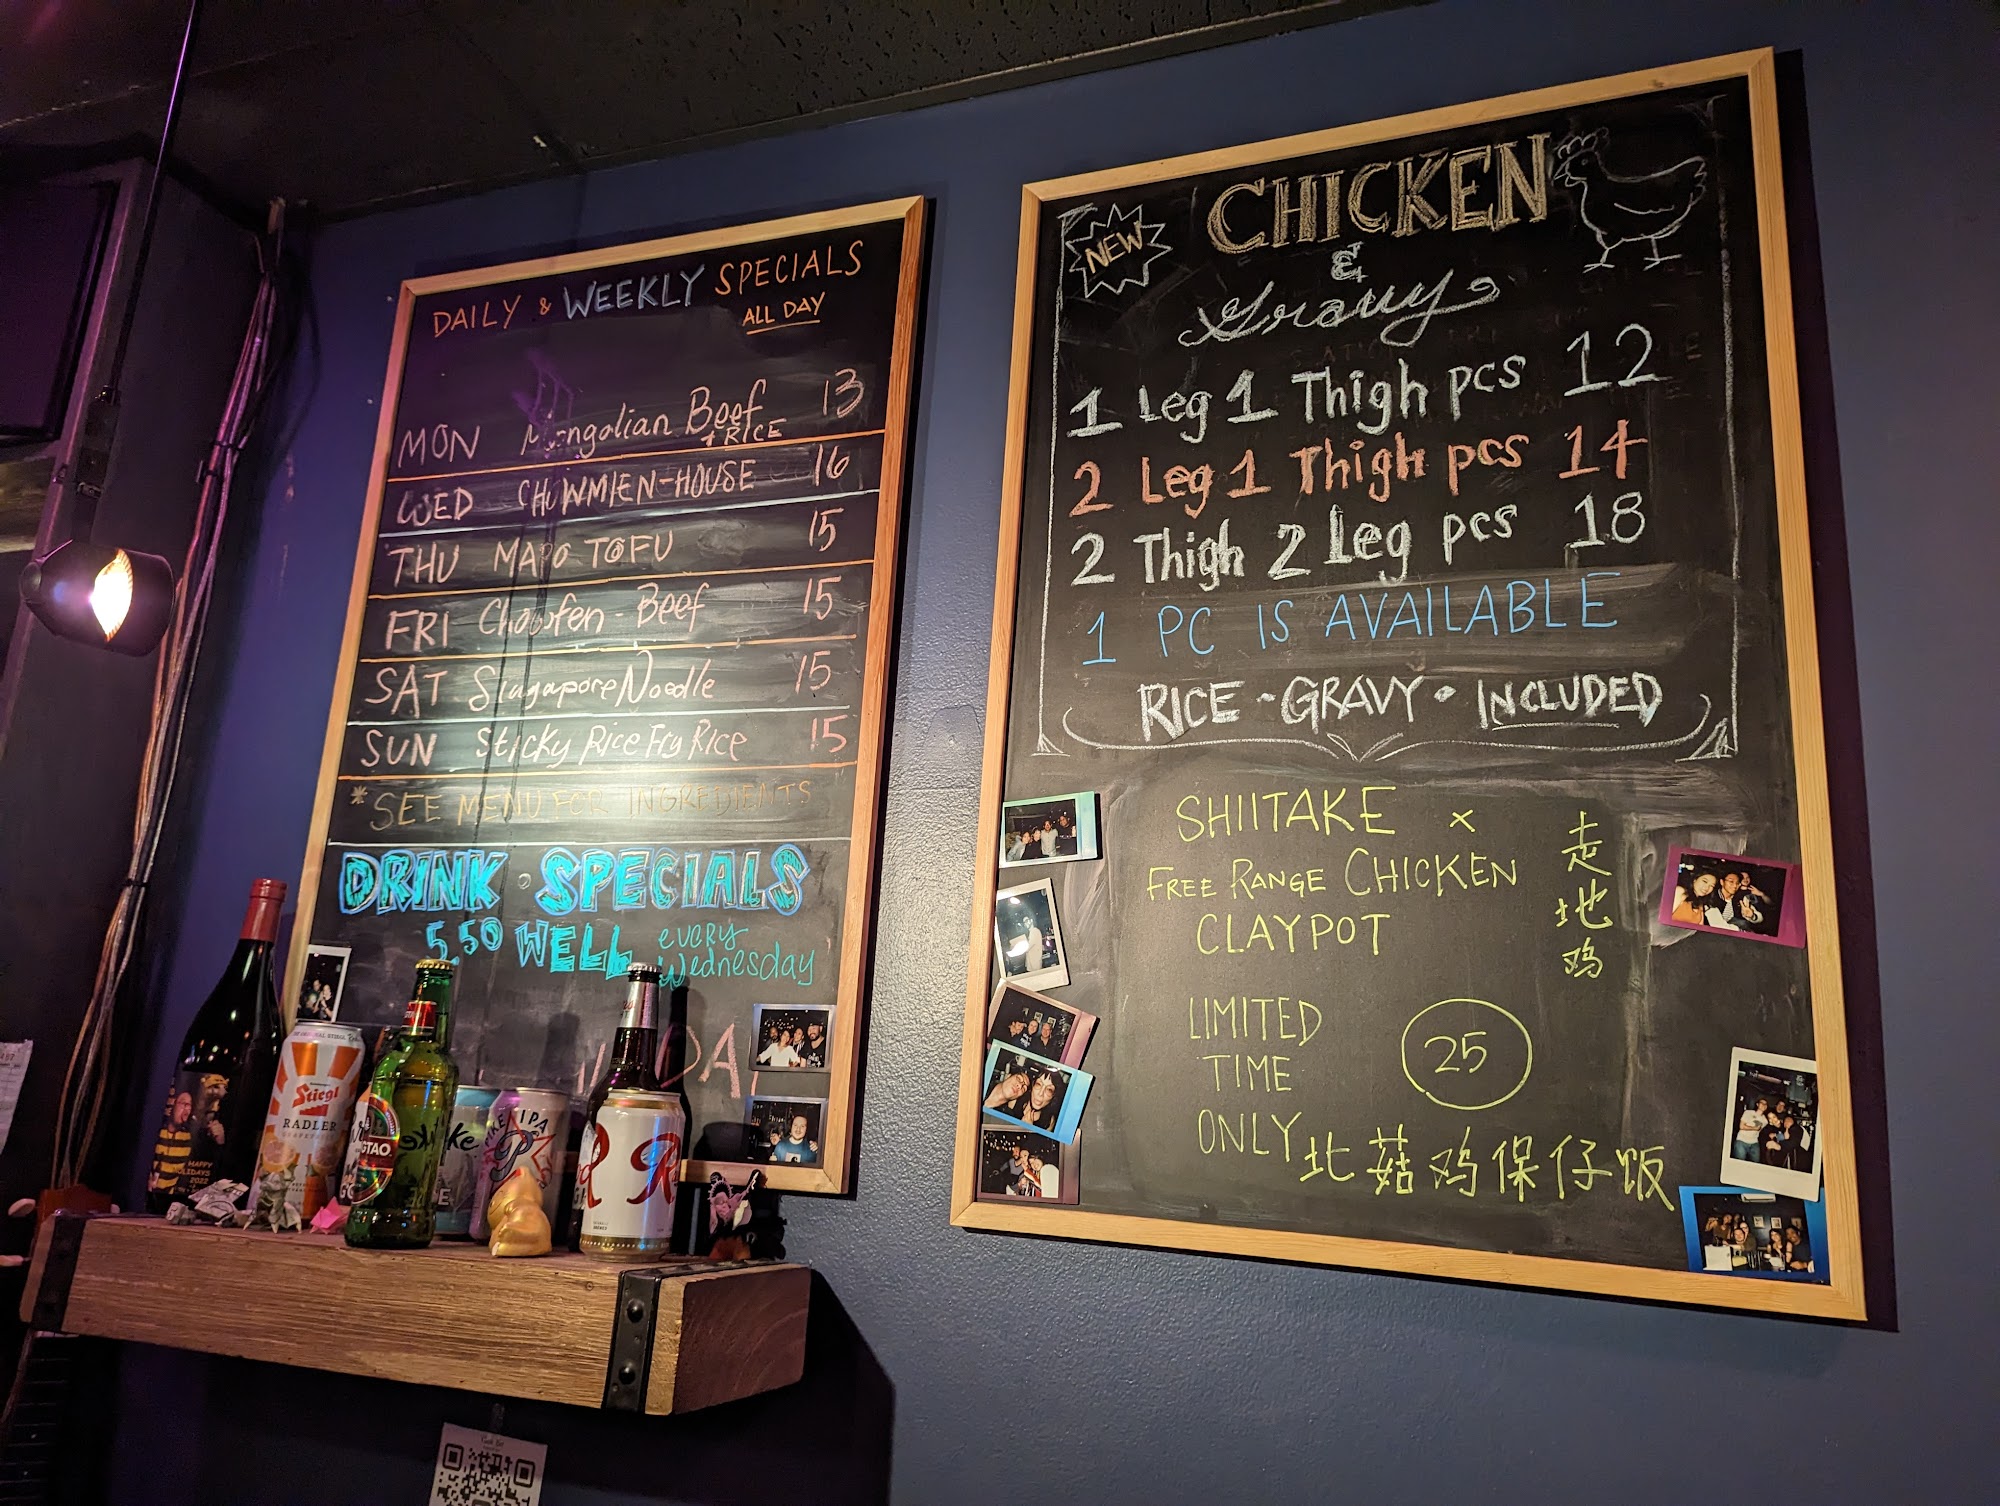 DAILY & WEEKLY SPECIALS
ALL DAY
MON Mongolian Beef 13
+ RICE
WED CHOWMIEN-HOUSE 16
THU MAPO TOFU 15
FRI Chowfen - Beef 15
SAT Singapore Noodle 15
SUN Sticky Rice Fry Rice 15
*SEE MENU FOR INGREDIENTS
DRINK · SPECIALS
5.50 WELL every
Wednesday
HAPPY
HOLIDAYS
2022
Stiegl
RADLER
IPA
R
NEW
CHICKEN
&
Gravy
1 Leg 1 Thigh pcs 12
2 Leg 1 Thigh pcs 14
2 Thigh 2 Leg pcs 18
1 PC IS AVAILABLE
RICE - GRAVY • INCLUDED
SHIITAKE x
FREE RANGE CHICKEN
CLAYPOT
走地鸡
LIMITED
TIME
ONLY
25
北菇鸡保仔饭